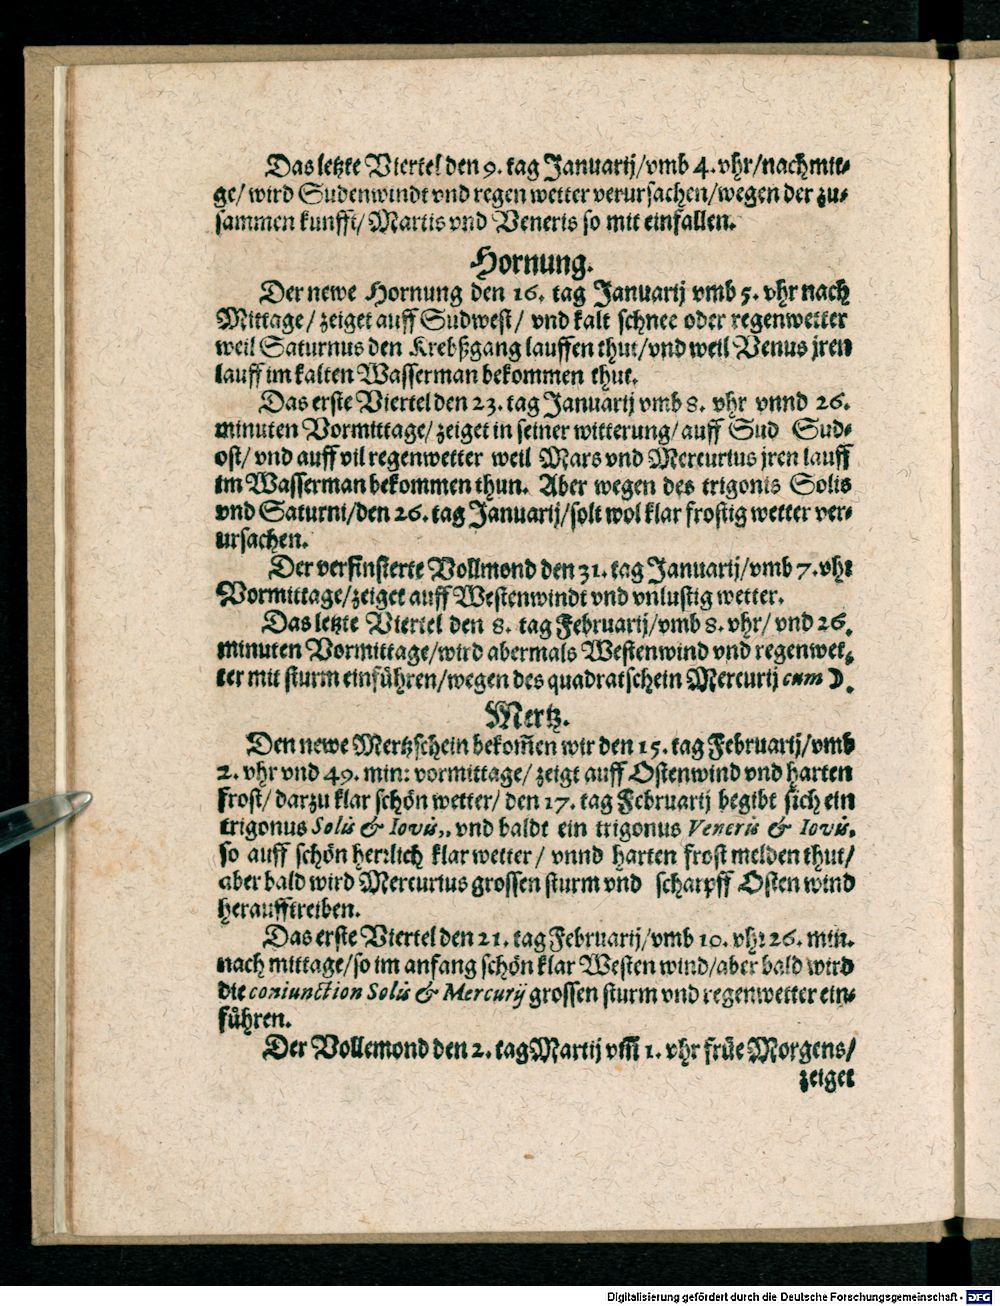 Das letzte Viertel den 9. tag Januarij/vmb 4. vhr/nachmit-
ge/ wird Sudenwindt vnd regen wetter verursachen/wegen der zu-
sammen kunfft/ Martis vnd Veneris so mit einfallen.
Hornung.
Der newe Hornung den 16. tag Januarij vmb 5. vhr nach
Mittage/ zeiget auff Sudwest/ vnd kalt schnee oder regenwetter
weil Saturnus den Krebßgang lauffen thut/vnd weil Venus jren
lauff im kalten Wasserman bekommen thut.
Das erste Viertel den 23. tag Januarij vmb 8. vhr vnnd 26.
minuten Vormittage/ zeiget in seiner witterung/ auff Sud Sud-
ost/ vnd auff vil regenwetter weil Mars vnd Mercurius jren lauff
im Wasserman bekommen thun. Aber wegen des trigonis Solis
vnd Saturni/den 26. tag Januarij/solt wol klar frostig wetter ver-
ursachen.
Der verfinsterte Vollmond den 31. tag Januarij/vmb 7. vhr
Vormittage/zeiget auff Westenwindt vnd vnlustig wetter.
Das letzte Viertel den 8. tag Februarij/vmb 8. vhr/ vnd 26.
minuten Vormittage/wird abermals Westenwind vnd regenwet-
ter mit sturm einführen/wegen des quadratschein Mercurij cum ☽.
Mertz.
Den newe Mertzschein bekom̃en wir den 15. tag Februarij/vmb
2. vhr vnd 49. min: vormittage/ zeigt auff Ostenwind vnd harten
frost/ darzu klar schön wetter/ den 17. tag Februarij begibt sich ein
trigonus Solis & Iovis,, vnd baldt ein trigonus Veneris & Iovis.
so auff schön herrlich klar wetter/ vnnd harten frost melden thut/
aber bald wird Mercurius grossen sturm vnd scharpff Osten wind
herauff treiben.
Das erste Viertel den 21. tag Februarij/vmb 10. vhr 26. min.
nach mittage/so im anfang schön klar Westen wind/aber bald wird
die coniunction Solis & Mercurij grossen sturm vnd regenwetter ein-
führen.
Der Vollemond den 2. tag Martij vm̃ 1. vhr früe Morgens/
zeiget
Digitalisierung gefördert durch die Deutsche Forschungsgemeinschaft - DFG